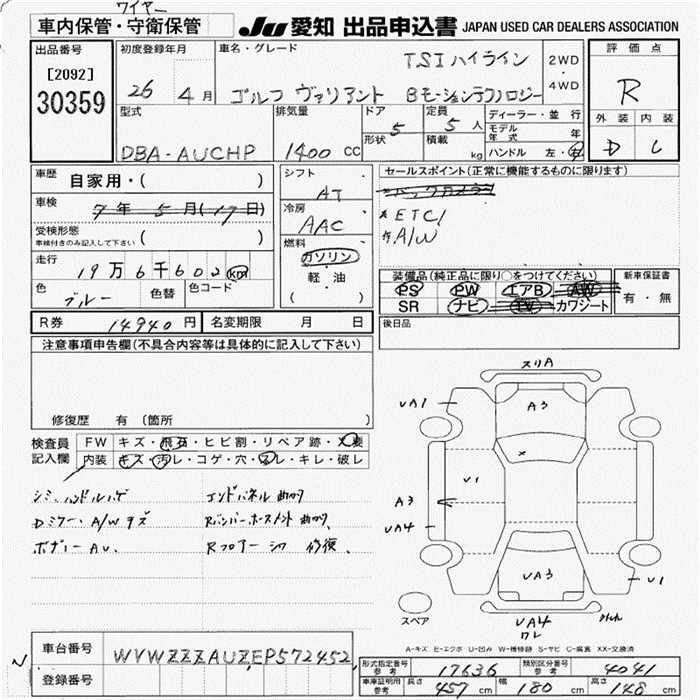 ワイヤー
車内保管・守衛保管
JU 愛知 出品申込書 JAPAN USED CAR DEALERS ASSOCIATION
出品番号
[2092]
30359
初度登録年月
26 4月
車名・グレード
TSIハイライン
ゴルフ ヴァリアント Bモーションテクノロジー
2WD
・
4WD
評価点
R
外装 内装
D C
型式
DBA-AUCHP
排気量
1400 CC
ドア 5
形状
定員 5人
積載 kg
ディーラー・並行
モデル年式 年
ハンドル 左・右
車歴
自家用・( )
車検
7年5月(17日)
受検形態
車検付きのみ記入して下さい ( )
走行
19万6千602km
色
ブルー
色替
色コード
シフト
AT
冷房
AAC
燃料
ガソリン
・
軽・油
( )
セールスポイント(正常に機能するものに限ります)
バックカメラ
ETC
A/W
装備品(純正品に限り○をつけてください)
PS PW エアB AW
SR ナビ TV カワシート
新車保証書
有・無
R券 14940円
名変期限 月 日
後日品
注意事項申告欄(不具合内容等は具体的に記入して下さい)
修復歴 有 〔箇所 〕
検査員記入欄
FW キズ・飛石・ヒビ割・リペア跡・×要
内装 キズ・汚レ・コゲ・穴・スレ・キレ・破レ
シミ、ハンドルハゲ
Dミラー・A/Wキズ
ボディーAU、
エンドパネル曲カリ
Rバンパーホースメント曲カリ
Rフロアーシワ 修復、
スリA
UA1
A3
×
U1
A3
UA4
UA3
U1
スペア
UA4
ワレ
A-キズ E-エクボ U-凹み W-補修跡 S-サビ C-腐食 XX-交換済
車台番号
WVWZZZAUZEP572452
登録番号
形式指定番号 参考 17636
類別区分番号 参考 4041
車庫証明用 参考 長さ 457cm 幅 180cm 高さ 148cm